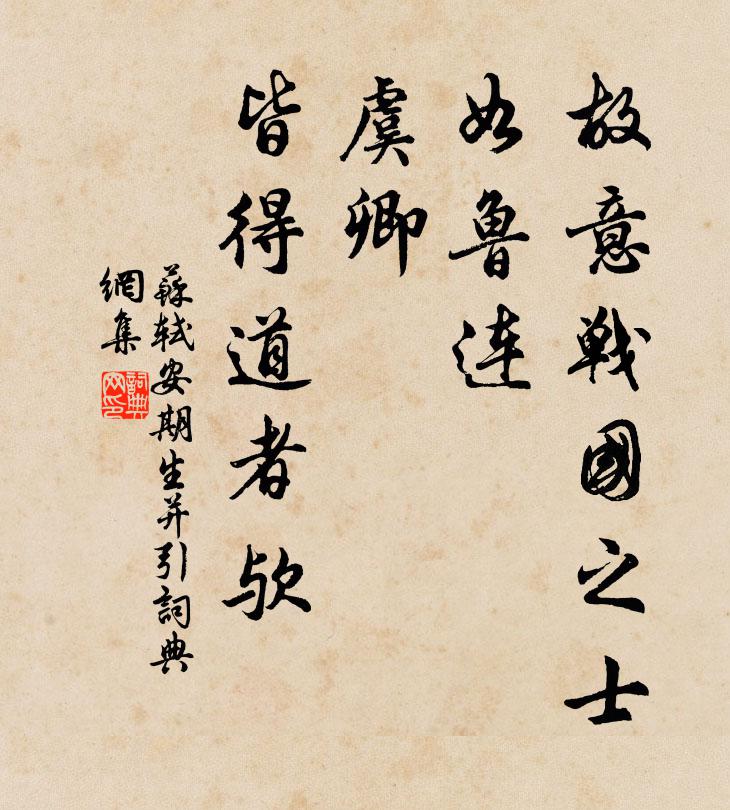 故意戰國之士
如魯連
虞卿
皆得道者歟
蘇軾安期生并引詞典
網集
詞典
网印